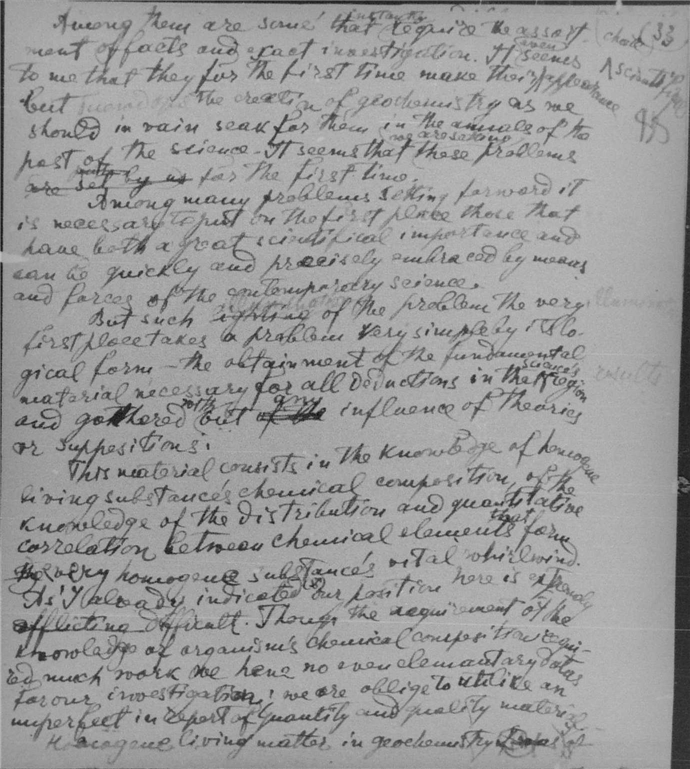 (33)
Among them are some that instantly require the assort-
ment of facts and exact investigation. It even seems
to me that they for the first time make their appearance
but the creation of geochemistry as we
should in vain seak for them in the annals of the
past of the science. It seems that these problems
we are setting
are set by us for the first time.
Among many problems setting forward it
is necessary to put on the first place those that
have both a great scientifical importance and
can be quickly and precisely embraced by means
and forces of the contemporary science.
But such lighting of the problem the very
first place takes a problem very simple by its lo-
gical form – the obtainment of the fundamental
material necessary for all deductions in the science's region
and gathered out of the any influence of theories
or suppositions.
This material consists in the knowledge of homogene
living substance's chemical composition, of the
knowledge of the distribution and quantitative
correlation between chemical elements that form
every homogene substance's vital whirlwind.
As I already indicated our position here is
afflicting difficult. Though the requirement of the
knowledge of organism's chemical composition requi-
red much work we have no even elementary datas
for our investigation: we are oblige to utilise an
imperfect in report of quantity and quality material.
Homogene living matter in geochemistry